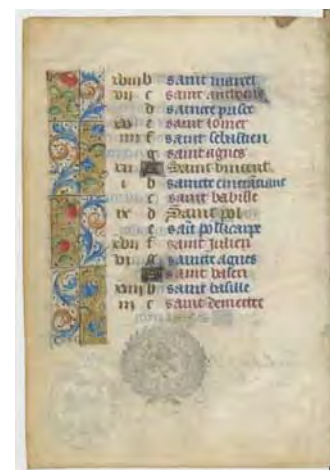 xviii b saint marcel
vii c saint anthoine
d saincte prisce
xv e saint lomer
iiii f saint sebastien
g saint agnes
xii A Saint vincent
i b saincte emerenciane
c saint babille
ix d Saint pol
e sait policarpe
xvii f saint julien
vi g saincte agnes
A saint
xiiii b saint basille
iii c saint